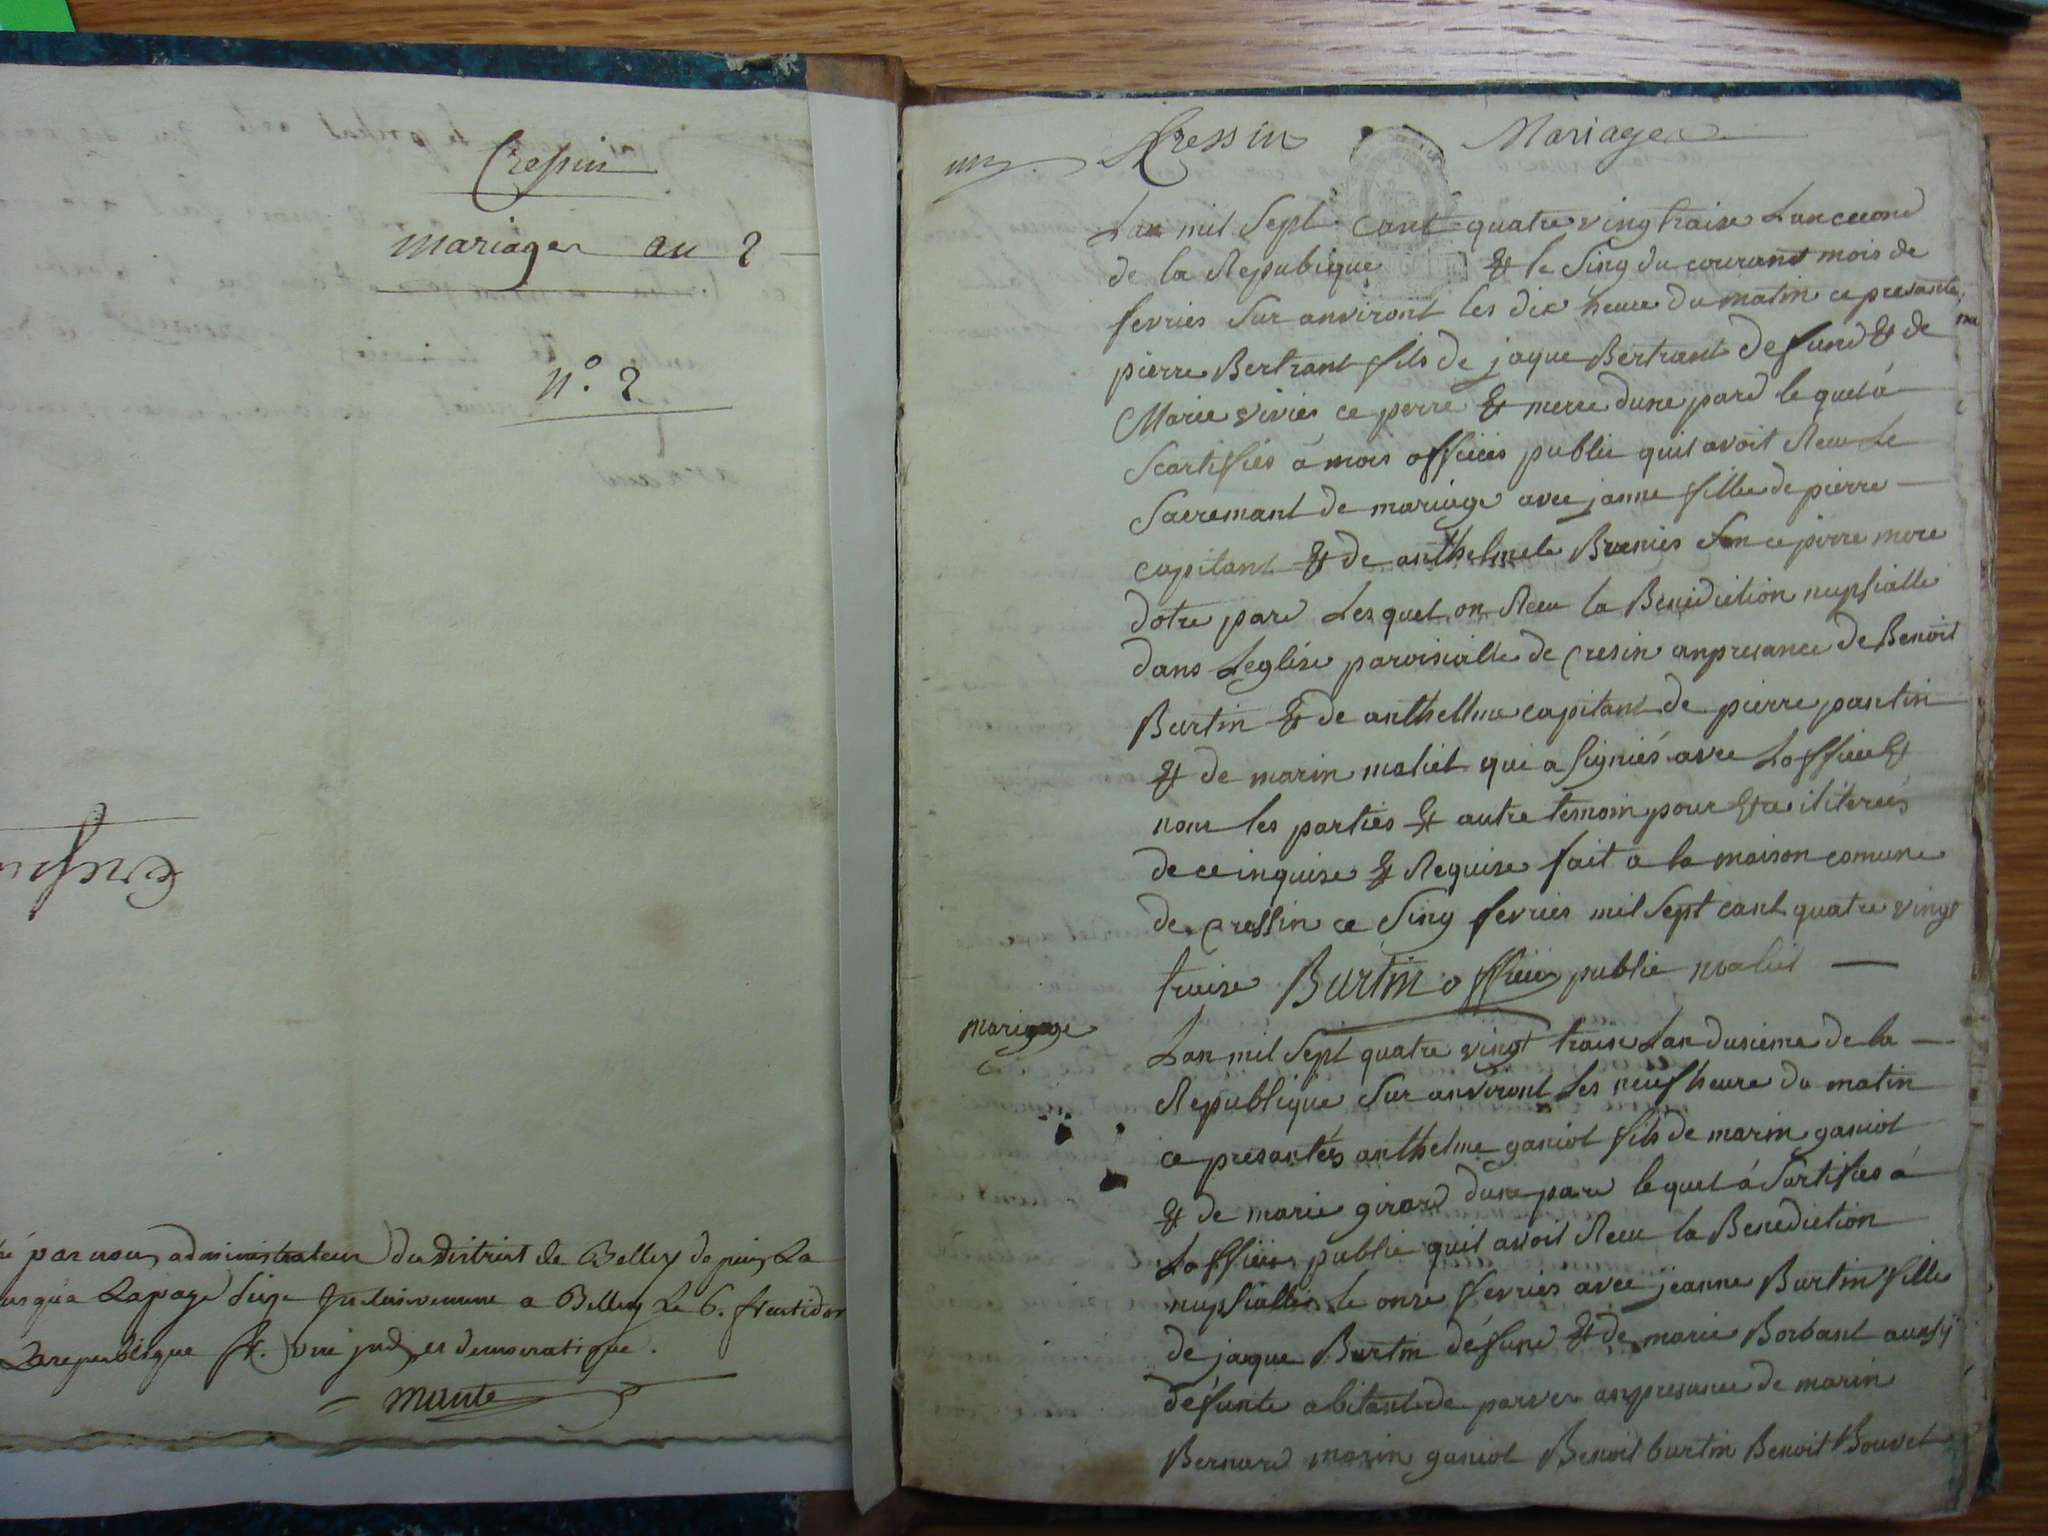 Cressin
mariages an 2
n.° 2
par nous administrateur du district de Belley depuis La
usqu'a La page seize Inclusivement a Belley Le 6. fructidor
La republique fr. une ind. et democratique.
Cressin Mariages
Lan mil sept cant quatre vingtraise Lan cecond
de la Republique & le sinq du courant mois de
fevries sur anviront les dix heure du matin ce presante
pierre Bertrant fils de jaque Bertrant defund & de
Marie vivies ce perre & merre dune pard le quel á
Scartifiés á mois officies public quil avoit Reeu Le
Sacremant de mariage avec janne fille de pierre
capitant & de anthelmete Brenies son ce perre mere
dotre pard Les quel on Reeu la Benediction nupsialle
dans Leglise paroisialle de Cresin anpresance de Benoit
Burtin & de anthelme capitant de pierre pantin
& de marin maliet qui a signiés avec Lofficie &
nom les parties & autre temoin pour Etre iliterés
de ce inquise & Requise fait a la maison comune
de Cressin ce sinq fevries mil sept cant quatre vingt
traise Burtin officies public maliet
mariage
Lan mil sept quatre vingt traise Lan dusieme de la
Republique sur anviront Les neuf heure du matin
ce presantés anthelme ganiot fils de marin ganiot
& de marie girard dune pard le quel á Surtifies á
Lofficies public quil avoit Reeu la Benediction
nupsialle le onze fevries avec jeanne Burtin fille
de jaque Burtin défund & de marie Borbant aussy
défunte abitant de parves anpresance de marin
Bernard marin ganiot Benoit burtin Benoit Bouvet